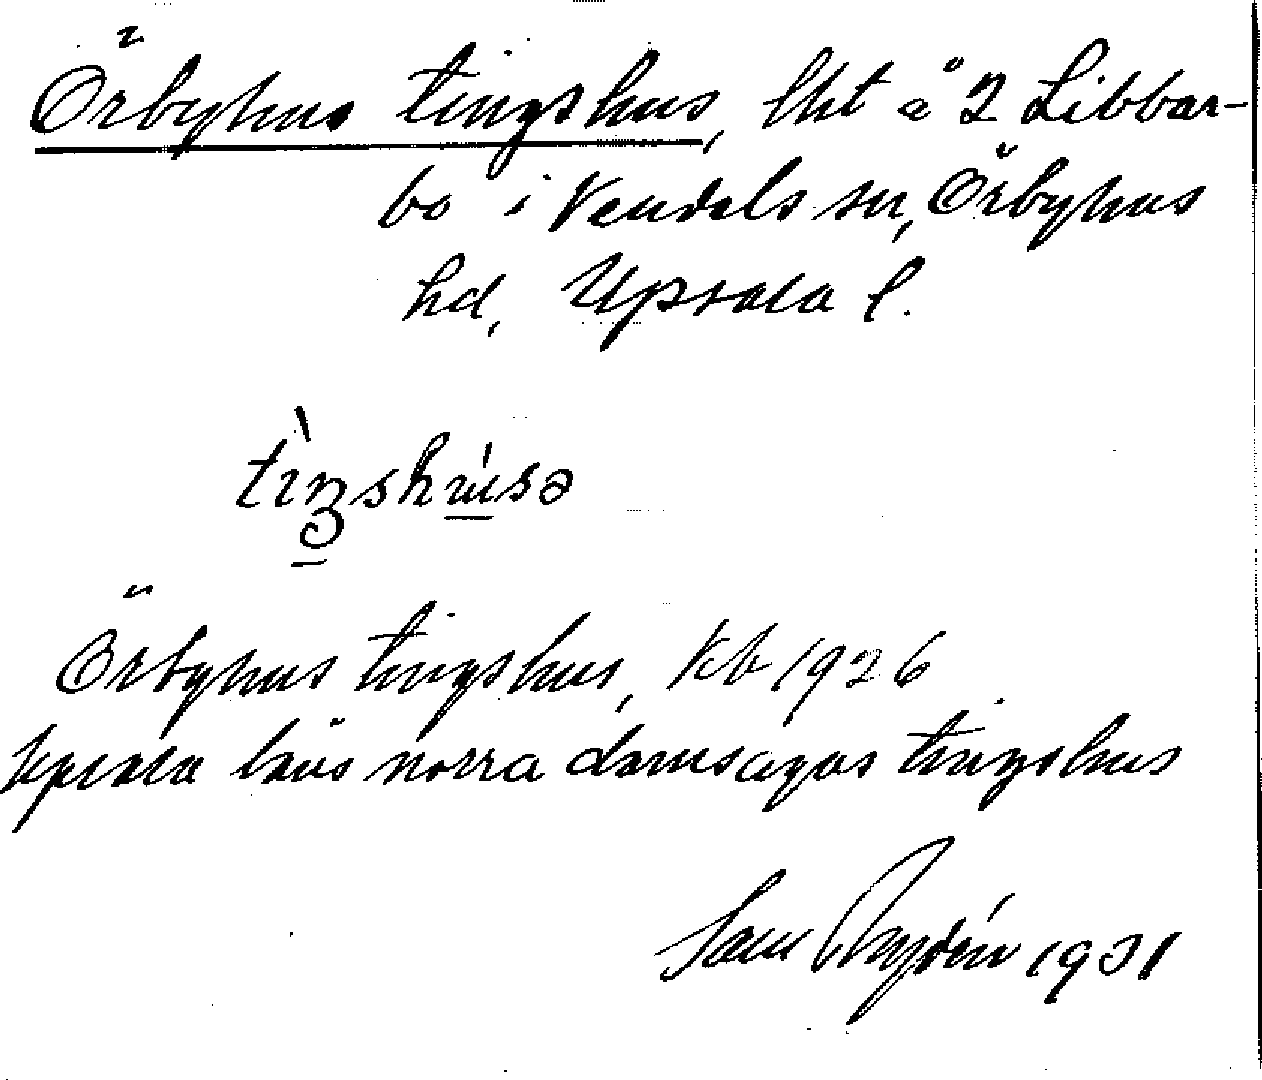 Örbyhus tingshus, lht å 2 Libbar-
bo i Vendels sn, Örbyhus
hd, Upsala l.
tìŋshúsə
Örbyhus tingshus, kb 1926
Upsala läns norra domsagas tingshus
Sam Rydén 1931